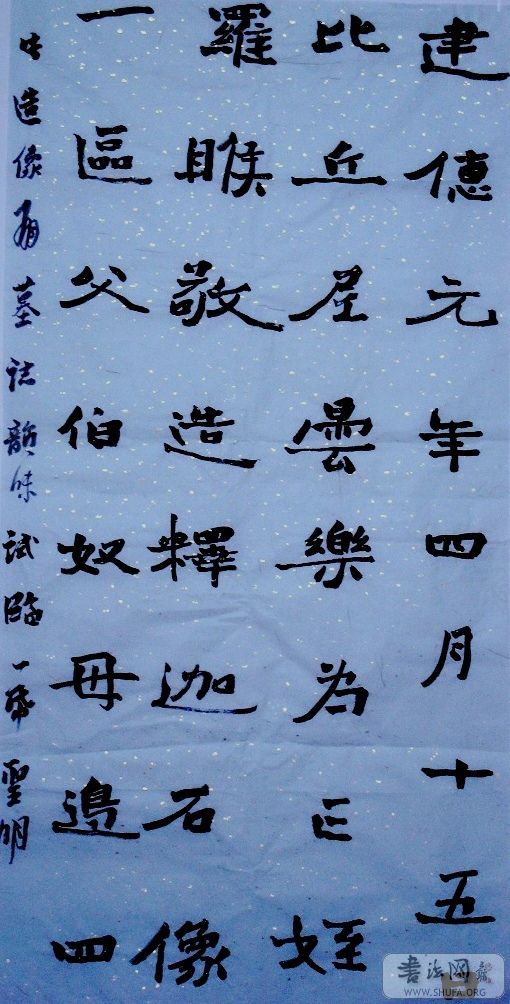 建德元年四月十五
比丘尼曇樂為亡姪
羅睺敬造釋迦石像
一區父伯奴母邊四
造像有墓誌韻味試臨一 聖明
書法网
WWW.SHUFA.ORG